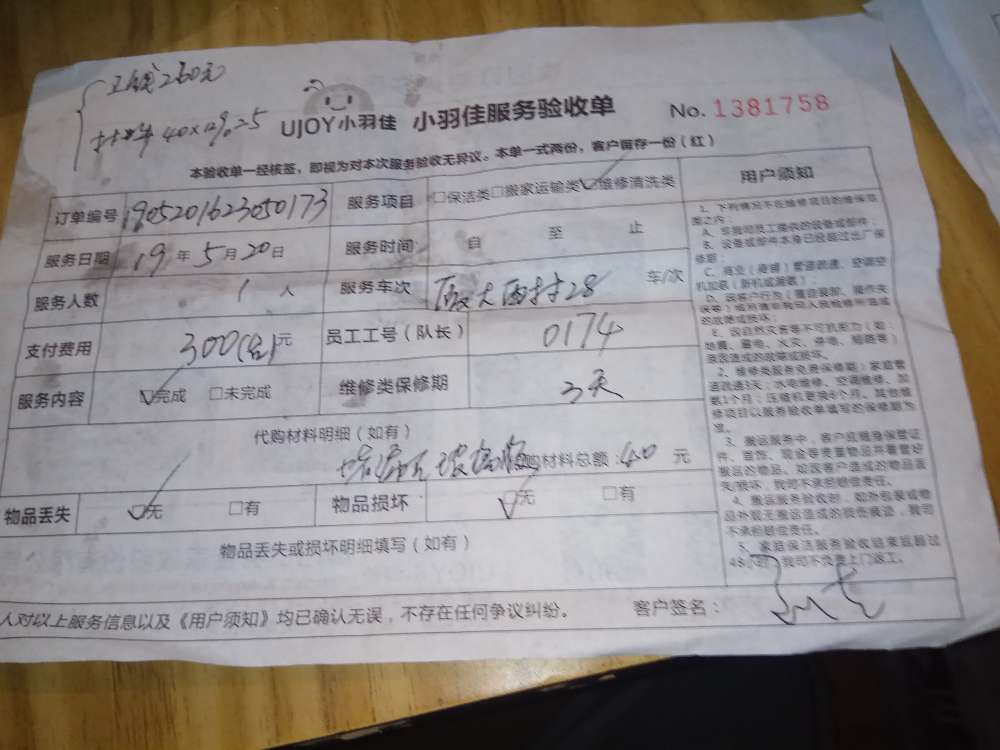 工钱260元
材料 40×12%=5
UJOY小羽佳 小羽佳服务验收单 No. 1381758
本验收单一经核签，即视为对本次服务验收无异议。本单一式两份，客户留存一份（红）
订单编号 1905201623050173 服务项目 □保洁类□搬家运输类□维修清洗类
服务日期 19年5月20日 服务时间 自 至 止
服务人数 1人 服务车次 厦大西村28 车/次
支付费用 300 元 员工工号（队长） 0174
服务内容 □完成 □未完成 维修类保修期 3天
代购材料明细（如有）
玻 购材料总额：40 元
物品丢失 □无 □有 物品损坏 □无 □有
物品丢失或损坏明细填写（如有）
人对以上服务信息以及《用户须知》均已确认无误，不存在任何争议纠纷。 客户签名：
用户须知
1、下列情况不在维修项目的维保范
围之内：
A、非我司员工提供的设备或部件；
B、设备或部件本身已经超过出厂保
修期；
C、商业（商铺）管道疏通、空调空
机加氟（新机或旧机）
E、因自然灾害等不可抗力（如：
地震、雷电、水灾、停电、短路等）
原因造成的故障或损坏。
2、维修类服务免费保修期：家庭管
道疏通3天；水电维修、空调维修、加
氟1个月；压缩机更换6个月。其他维
修项目以服务验收单填写的保修期为
准。
3、搬运服务中，客户应随身保管证
件、首饰、现金等贵重物品并看管好
搬运的物品。如因客户造成的物品丢
失/损坏，我司不承担赔偿责任。
4、搬运服务验收时，如外包装或物
品外观无搬运造成的损伤痕迹，我司
不承担赔偿责任。
5、家庭保洁服务验收结束后超过
48小时，我司不负责上门返工。